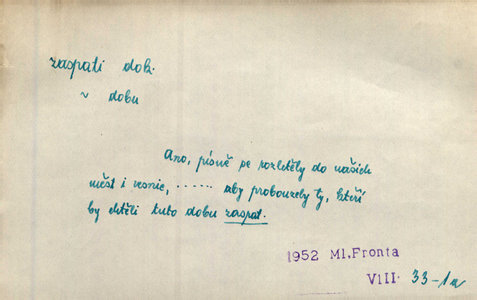 zaspati dok.
~ dobu
Ano, písně se rozletěly do našich
měst i vesnic, ...... aby probouzely ty, kteří
by chtěli tuto dobu zaspat.
1952 Ml.Fronta
VIII. 33-1a